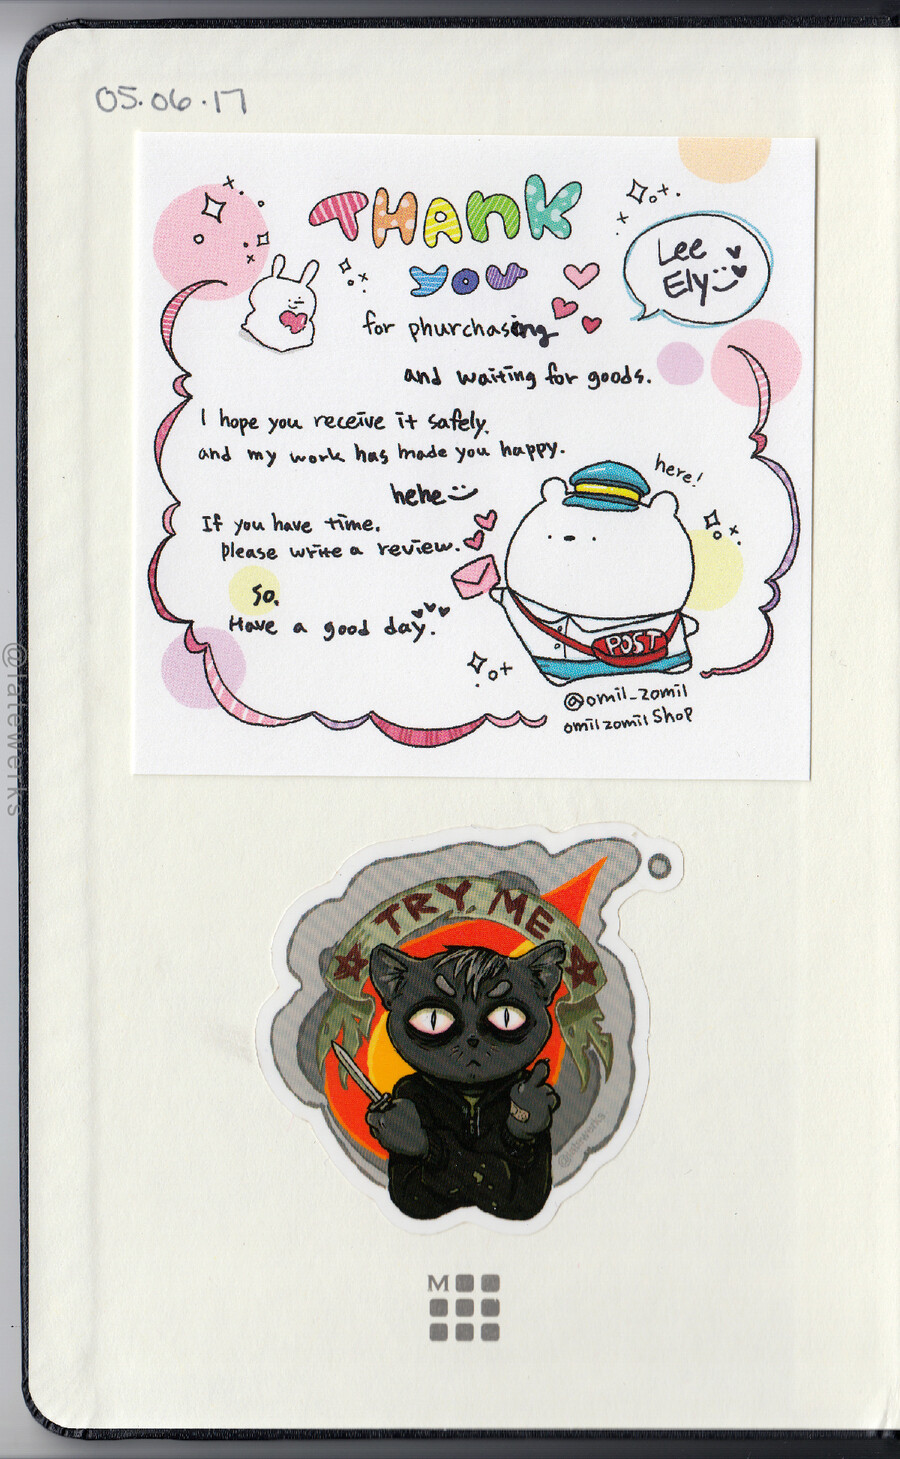 05.06.17
THANK
you
Lee
Ely
for phurchasing
and waiting for goods.
I hope you receive it safely.
and my work has made you happy.
hehe
here!
If you have time.
please write a review.
So.
Have a good day.
POST
@omil_zomil
omilzomil Shop
@latewerks
TRY ME
@latewerks
M